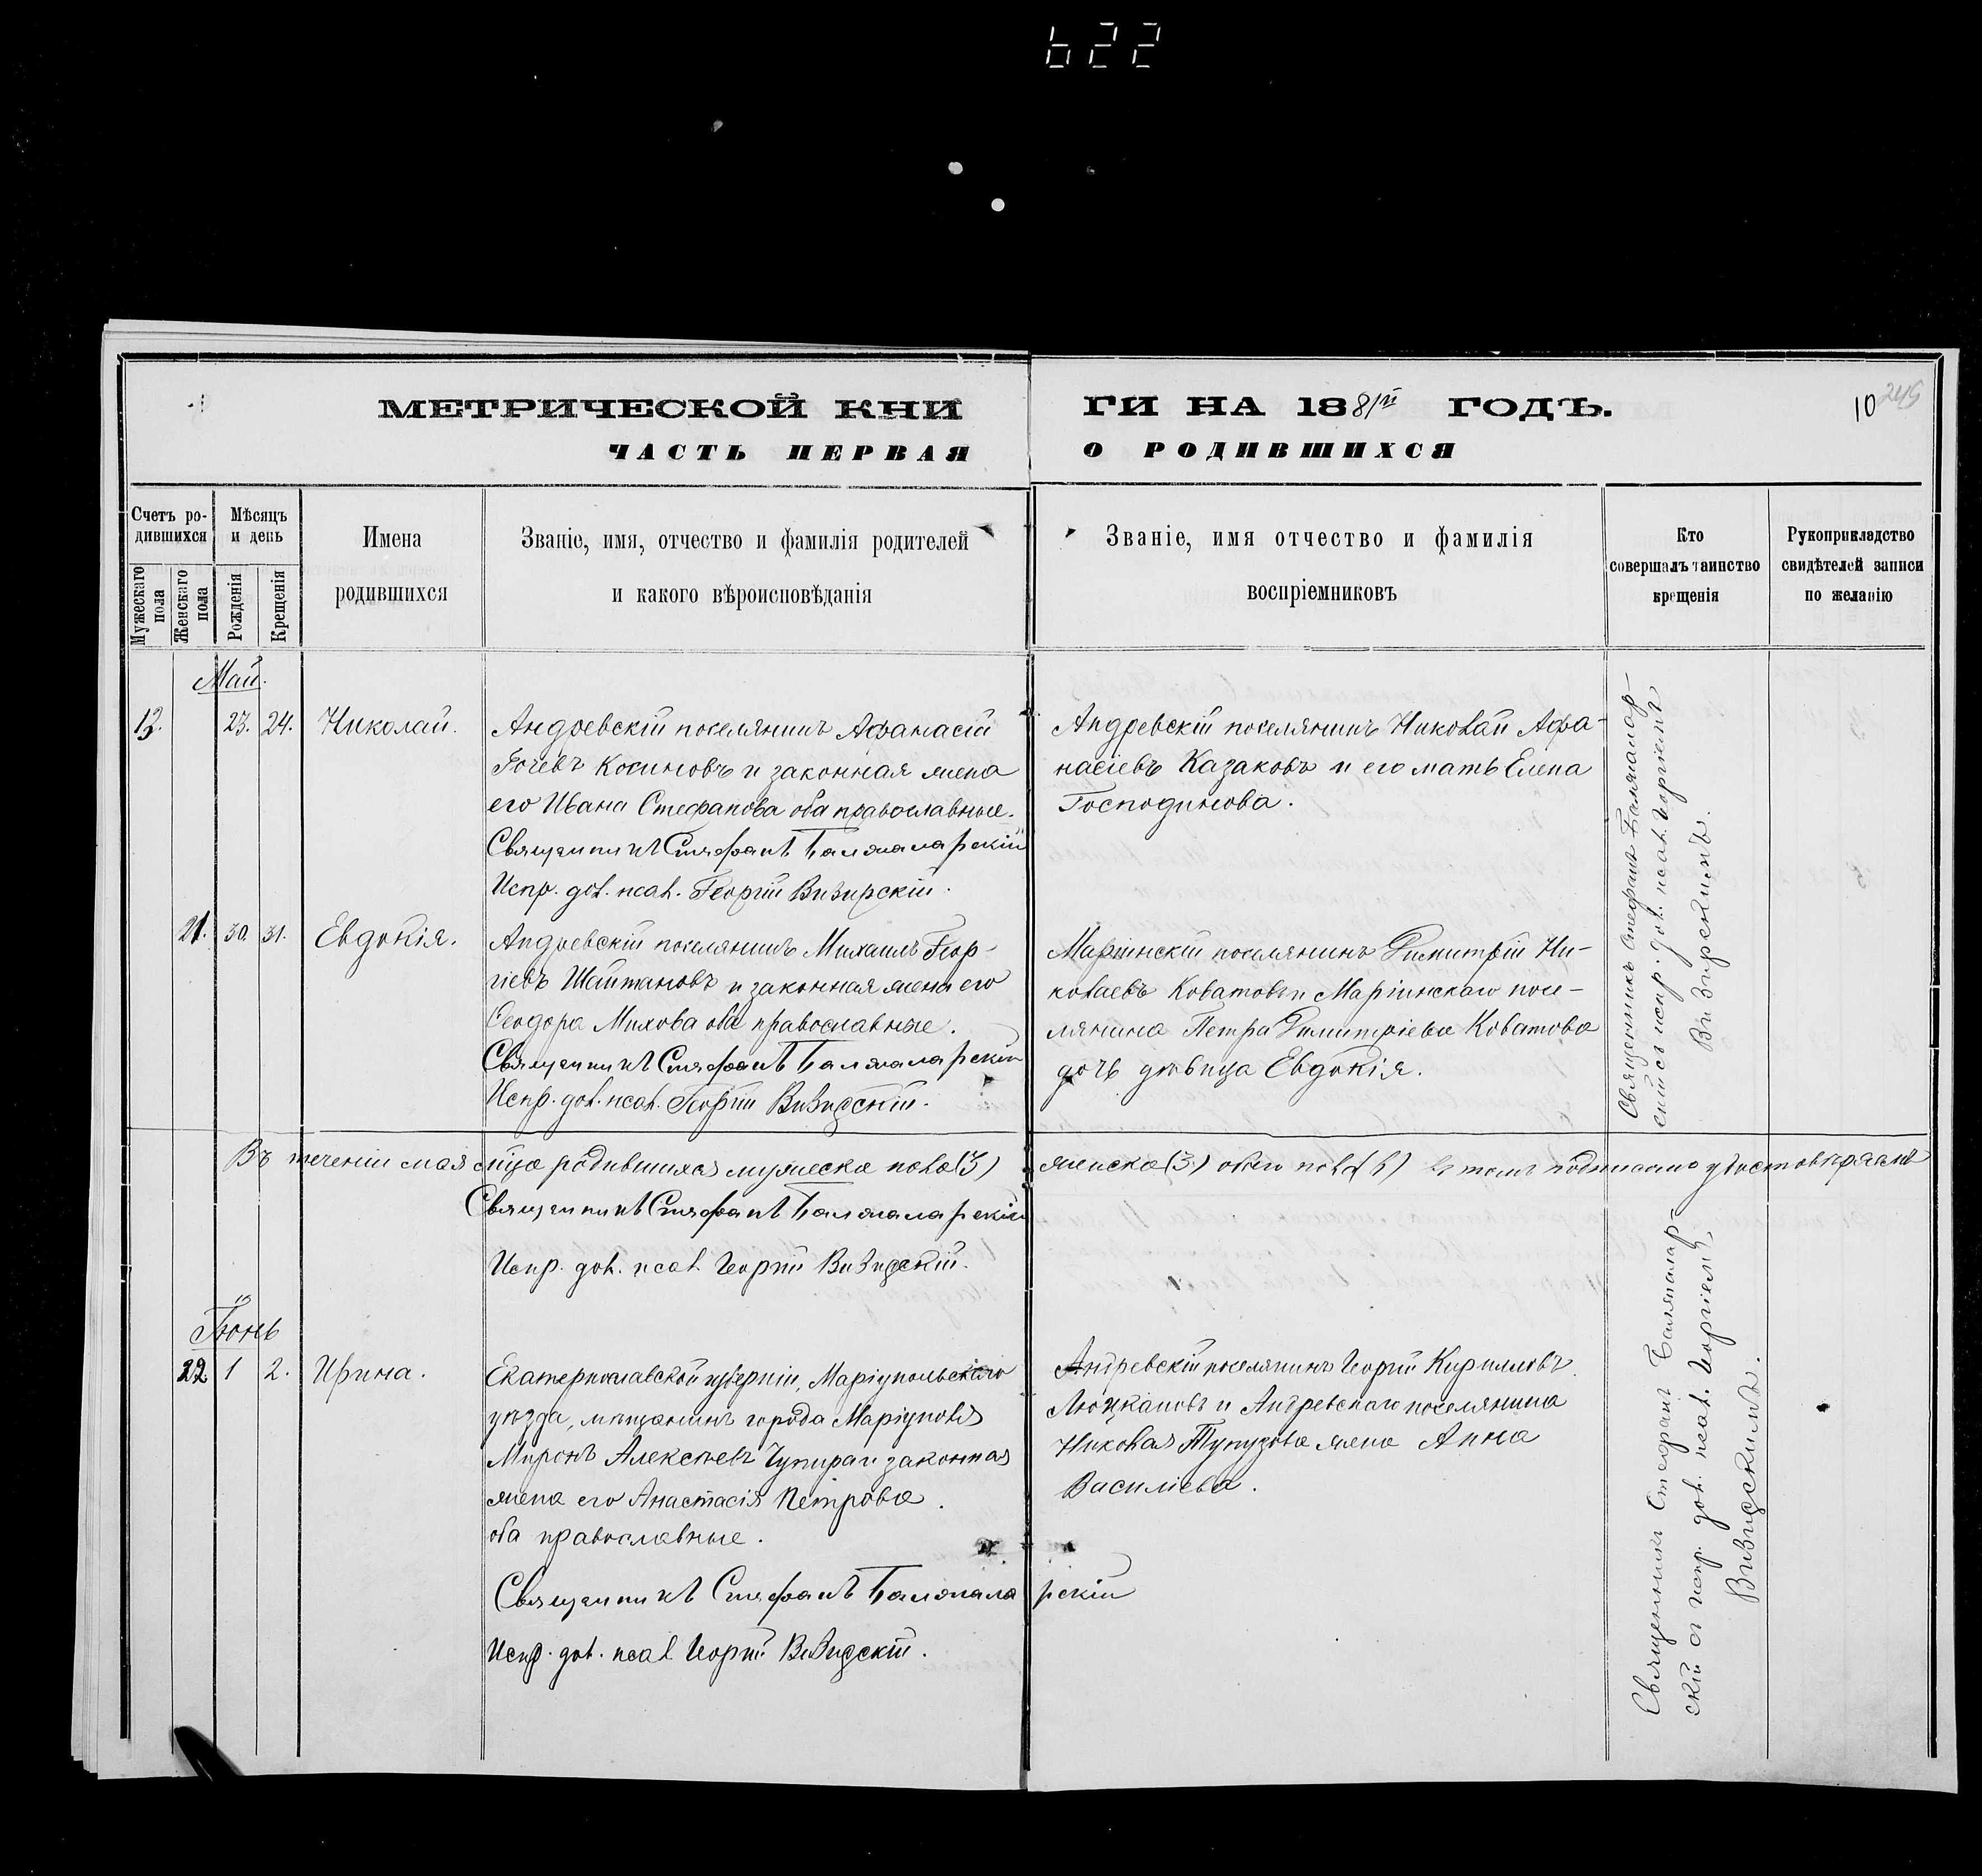 622
МЕТРИЧЕСКОЙ КНИ
ГИ НА 1881й ГОДЪ.
10
249
ЧАСТЬ ПЕРВАЯ
О РОДИВШИХСЯ
Счетъ ро-
дившихся
Мужескаго
пола
Женскаго
пола
Мѣсяцъ
и день
Рожденія
Крещенія
Имена
родившихся
Званіе, имя, отчество и фамилія родителей
и какого вѣроисповѣданія
Званіе, имя отчество и фамилія
воспріемниковъ
Кто
совершалъ таинство
крещенія
Рукоприкладство
свидѣтелей записи
по желанію
Май.
13. 23. 24. Николай.
Андревскій поселянинъ Афанасій
Гочевъ Косиновъ и законная жена
его Ивана Стефанова оба православные.
Священникъ Стефанъ Балжаларскій
Испр. дол. псал. Георгій Визирскій.
Андревскій поселянинъ Николай Афа-
насіевъ Казаковъ и его мать Елена
Господинова.
Священникъ Стефанъ Балжалар-
скій съ испр. дол. псал. Георгіемъ
Визирскимъ.
21. 30. 31. Евдокія.
Андревскій поселянинъ Михаилъ Геор-
гіевъ Шайтановъ и законная жена его
Ѳеодора Милова оба православные.
Священникъ Стефанъ Балжаларскій
Испр. дол. псал. Георгій Визирскій.
Маріинскій поселянинъ Димитрій Ни-
колаевъ Коватовъ и Маріинскаго посе-
лянина Петра Димитріева Коватова
дочь дѣвица Евдокія.
Въ теченіи мая м-ца родившихся мужеска пола (3)
женска (3) обоего пола (6) въ томъ подписомъ удостовѣряемъ
Священникъ Стефанъ Балжаларскій
Испр. дол. псал. Георгій Визирскій.
Іюнь
22. 1 2. Ирина.
Екатеринославской губерніи, Маріупольскаго
уѣзда, мѣщанинъ города Маріуполя
Миронъ Алексѣевъ Чупира и законная
жена его Анастасія Петрова.
оба православные.
Священникъ Стефанъ Балжаларскій
Испр. дол. псал. Георгій Визирскій.
Андревскій поселянинъ Георгій Кирилловъ
Люцкановъ и Андревскаго поселянина
Николая Тупузова жена Анна
Василіева.
Священникъ Стефанъ Балжалар-
скій съ испр. дол. псал. Георгіемъ
Визирскимъ.